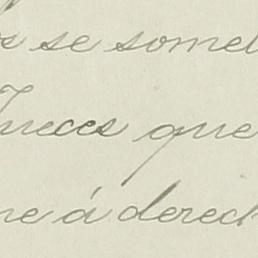 s se somet
Jueces que
ne á derech